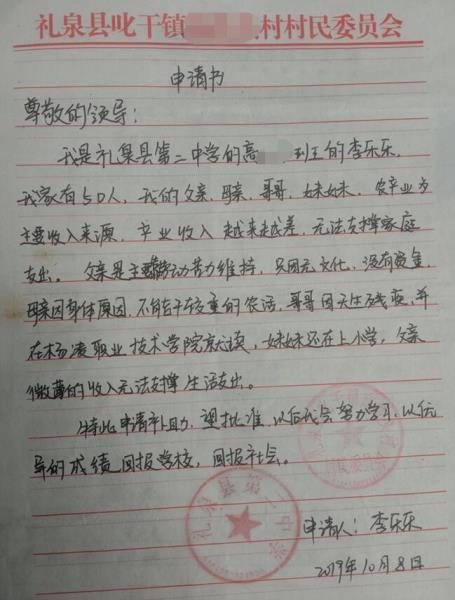 礼泉县叱干镇 村村民委员会
申请书
尊敬的领导：
我是礼泉县第二中学的高 班的李乐乐，
我家有5口人，我的父亲，母亲，哥哥，妹妹，农产业为
主要收入来源，产业收入越来越差，无法支撑家庭
支出。父亲是主要劳动苦力维持，只因无文化，没有资金，
母亲因身体原因，不能干较重的农活，哥哥因天生残疾，并
在杨凌职业技术学院就读，妹妹还在上小学，父亲
微薄的收入无法支撑生活支出。
特此申请补助，望批准，以后我会努力学习，以优
异的成绩回报学校，回报社会。
村民委员会
礼泉县第二中学
申请人：李乐乐
2019年10月8日